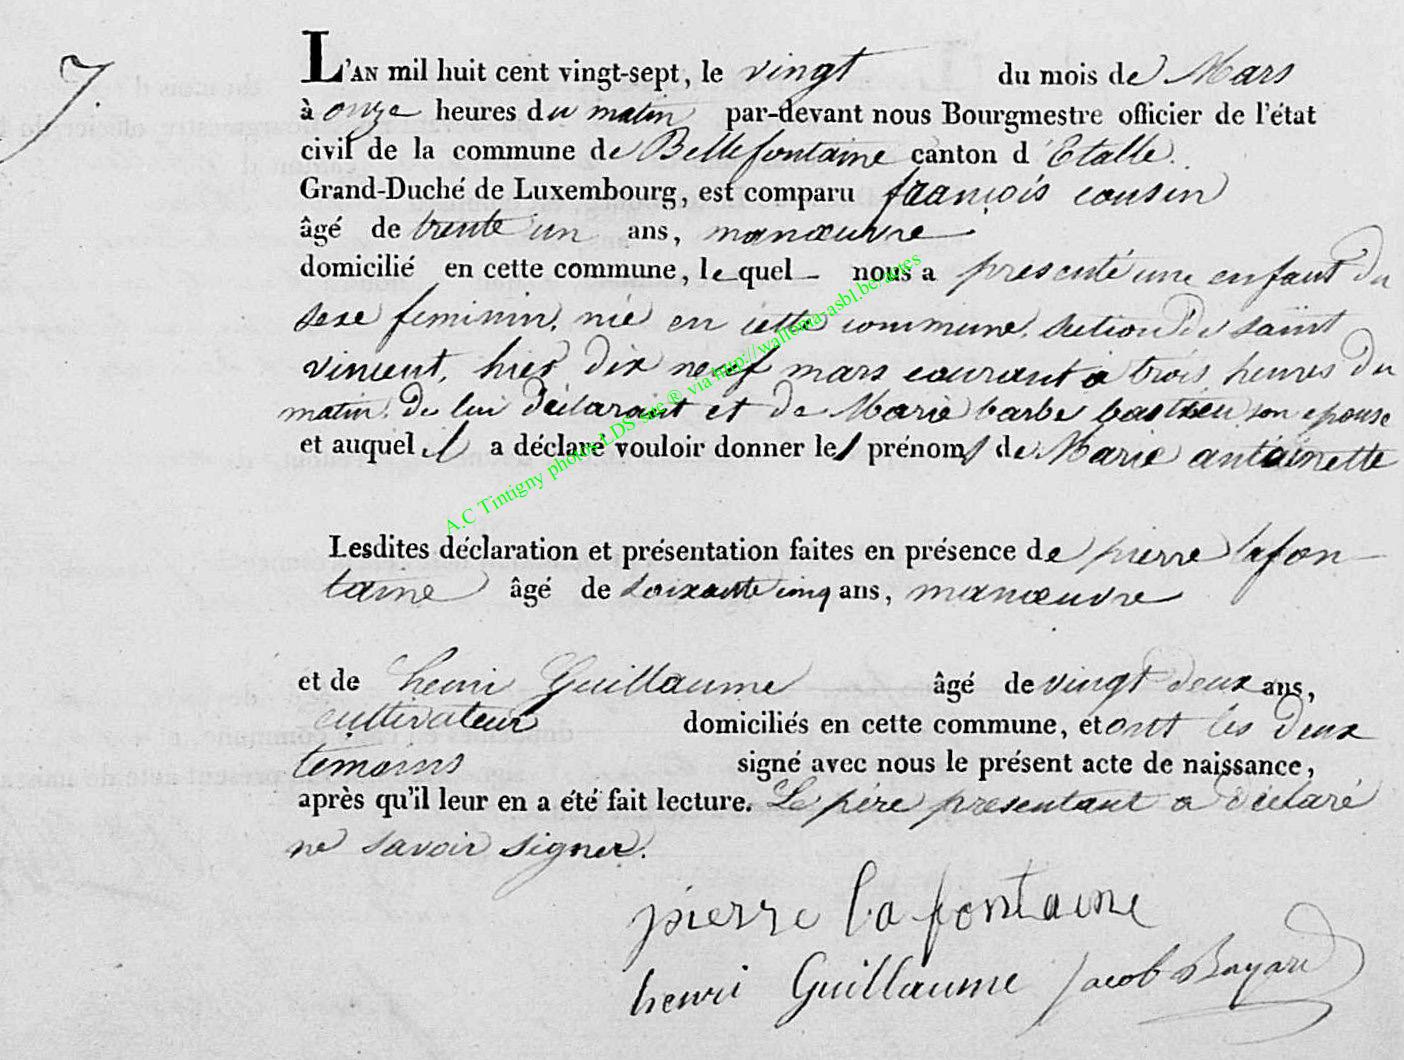 7.
L'AN mil huit cent vingt-sept, le vingt du mois de Mars
à onze heures du matin par-devant nous Bourgmestre officier de l'état
civil de la commune de Bellefontaine canton d'Etalle.
Grand-Duché de Luxembourg, est comparu françois cousin
âgé de trente un ans, manœuvre
domicilié en cette commune, lequel nous a presenté une enfant du
sexe feminin, née en cette commune, section de saint
vincent, hier dix neuf mars courant à trois heures du
matin, de lui déclarant et de Marie barbe bastien son epouse
et auquel il a déclaré vouloir donner les prénoms de Marie antoinette
A.C Tintigny photos LDS site ® via http://wallonia-asbl.be/actes
Lesdites déclaration et présentation faites en présence de pierre lafon
taine âgé de soixante cinq ans, manœuvre
et de henri Guillaume âgé de vingt deux ans,
cultivateur domiciliés en cette commune, et ont les deux
temoins signé avec nous le présent acte de naissance,
après qu'il leur en a été fait lecture. Le père presentant a déclaré
ne savoir signer.
pierre lafontaine
henri Guillaume Jacob Bayard